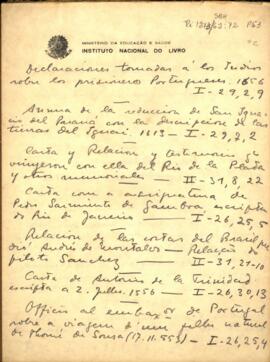 SBH
Pi 128/63:72 P63
MINISTERIO DA EDUCAÇÃO E SAUDE
INSTITUTO NACIONAL DO LIVRO
Declaraciones tomadas á los Indios
sobre los prisioneros Portugueses. 1656
I-29,2,9
Summa de la reduccion de San Igna-
cio del Paraná con la descripcion de las
tierras del 1613 - I-29,2,2
Carta y Relacion y testimonio q
vinyeron con ella del Rio de la Plata
y otros memoriales — II-31,8,22
Carta con a assignatura de
Pedro Sarmiento de Gamboa, escripta
do Rio de Janeiro — I-26,25,5
Relacion de las costas del Brasil p
Andrés de Montalvo — Relação do
piloto Sanchez — II-31,21-10
Carta de Antonio de la Trinidad
escripta a 2. Julho. 1556 — I-26,30,13
Officio al embax^or de Portugal
sobre a viagem d'um natural
de Thomé de Sousa (17.11.553) — I-26,25,4